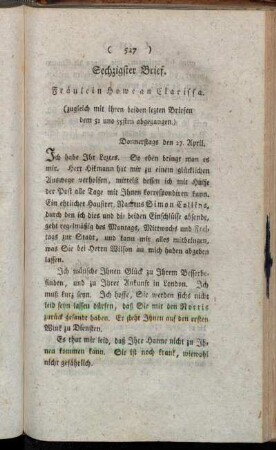 ( 527 )
Sechzigster Brief.
Fräulein Howe an Clarissa.
(zugleich mit ihren beiden lezten Briefen
dem 51 und 53sten abgegangen.)
Donnerstags den 27. April.
Ich habe Ihr Leztes. So eben bringt man es
mir. Herr Hikmann hat mir zu einem glücklichen
Auswege verholfen, mittelst dessen ich mit Hülfe
der Post alle Tage mit Ihnen korrespondiren kann.
Ein ehrlicher Hausirer, Namens Simon Colikns,
durch den ich dies und die beiden Einschlüsse absende,
geht regelmäßig des Montags, Mitwochs und Frei-
tags zur Stadt, und kann mir alles mitbringen,
was Sie bei Herrn Wilson an mich haben abgeben
lassen.
Ich wünsche Ihnen Glück zu Ihrem Besserbe-
finden, und zu Ihrer Ankunft in London. Ich
muß kurz seyn. Ich hoffe, Sie werden sichs nicht
leid seyn lassen dürfen, daß Sie mir den Norris
zurück gesandt haben. Er steht Ihnen auf den ersten
Wink zu Diensten.
Es thut mir leid, daß Ihre Hanne nicht zu Ih-
nen kommen kann. Sie ist noch krank, wiewohl
nicht gefährlich.